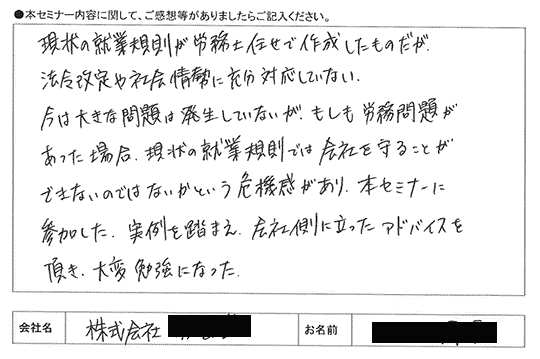 ●本セミナー内容に関して、ご感想等がありましたらご記入ください。
現状の就業規則が労務士任せで作成したものだが、
法令改定や社会情勢に充分対応していない。
今は大きな問題は発生していないが、もしも労務問題が
あった場合、現状の就業規則では会社を守ることが
できないのではないかという危機感があり、本セミナーに
参加した。実例を踏まえ、会社側に立ったアドバイスを
頂き、大変勉強になった。
会社名 株式会社 お名前